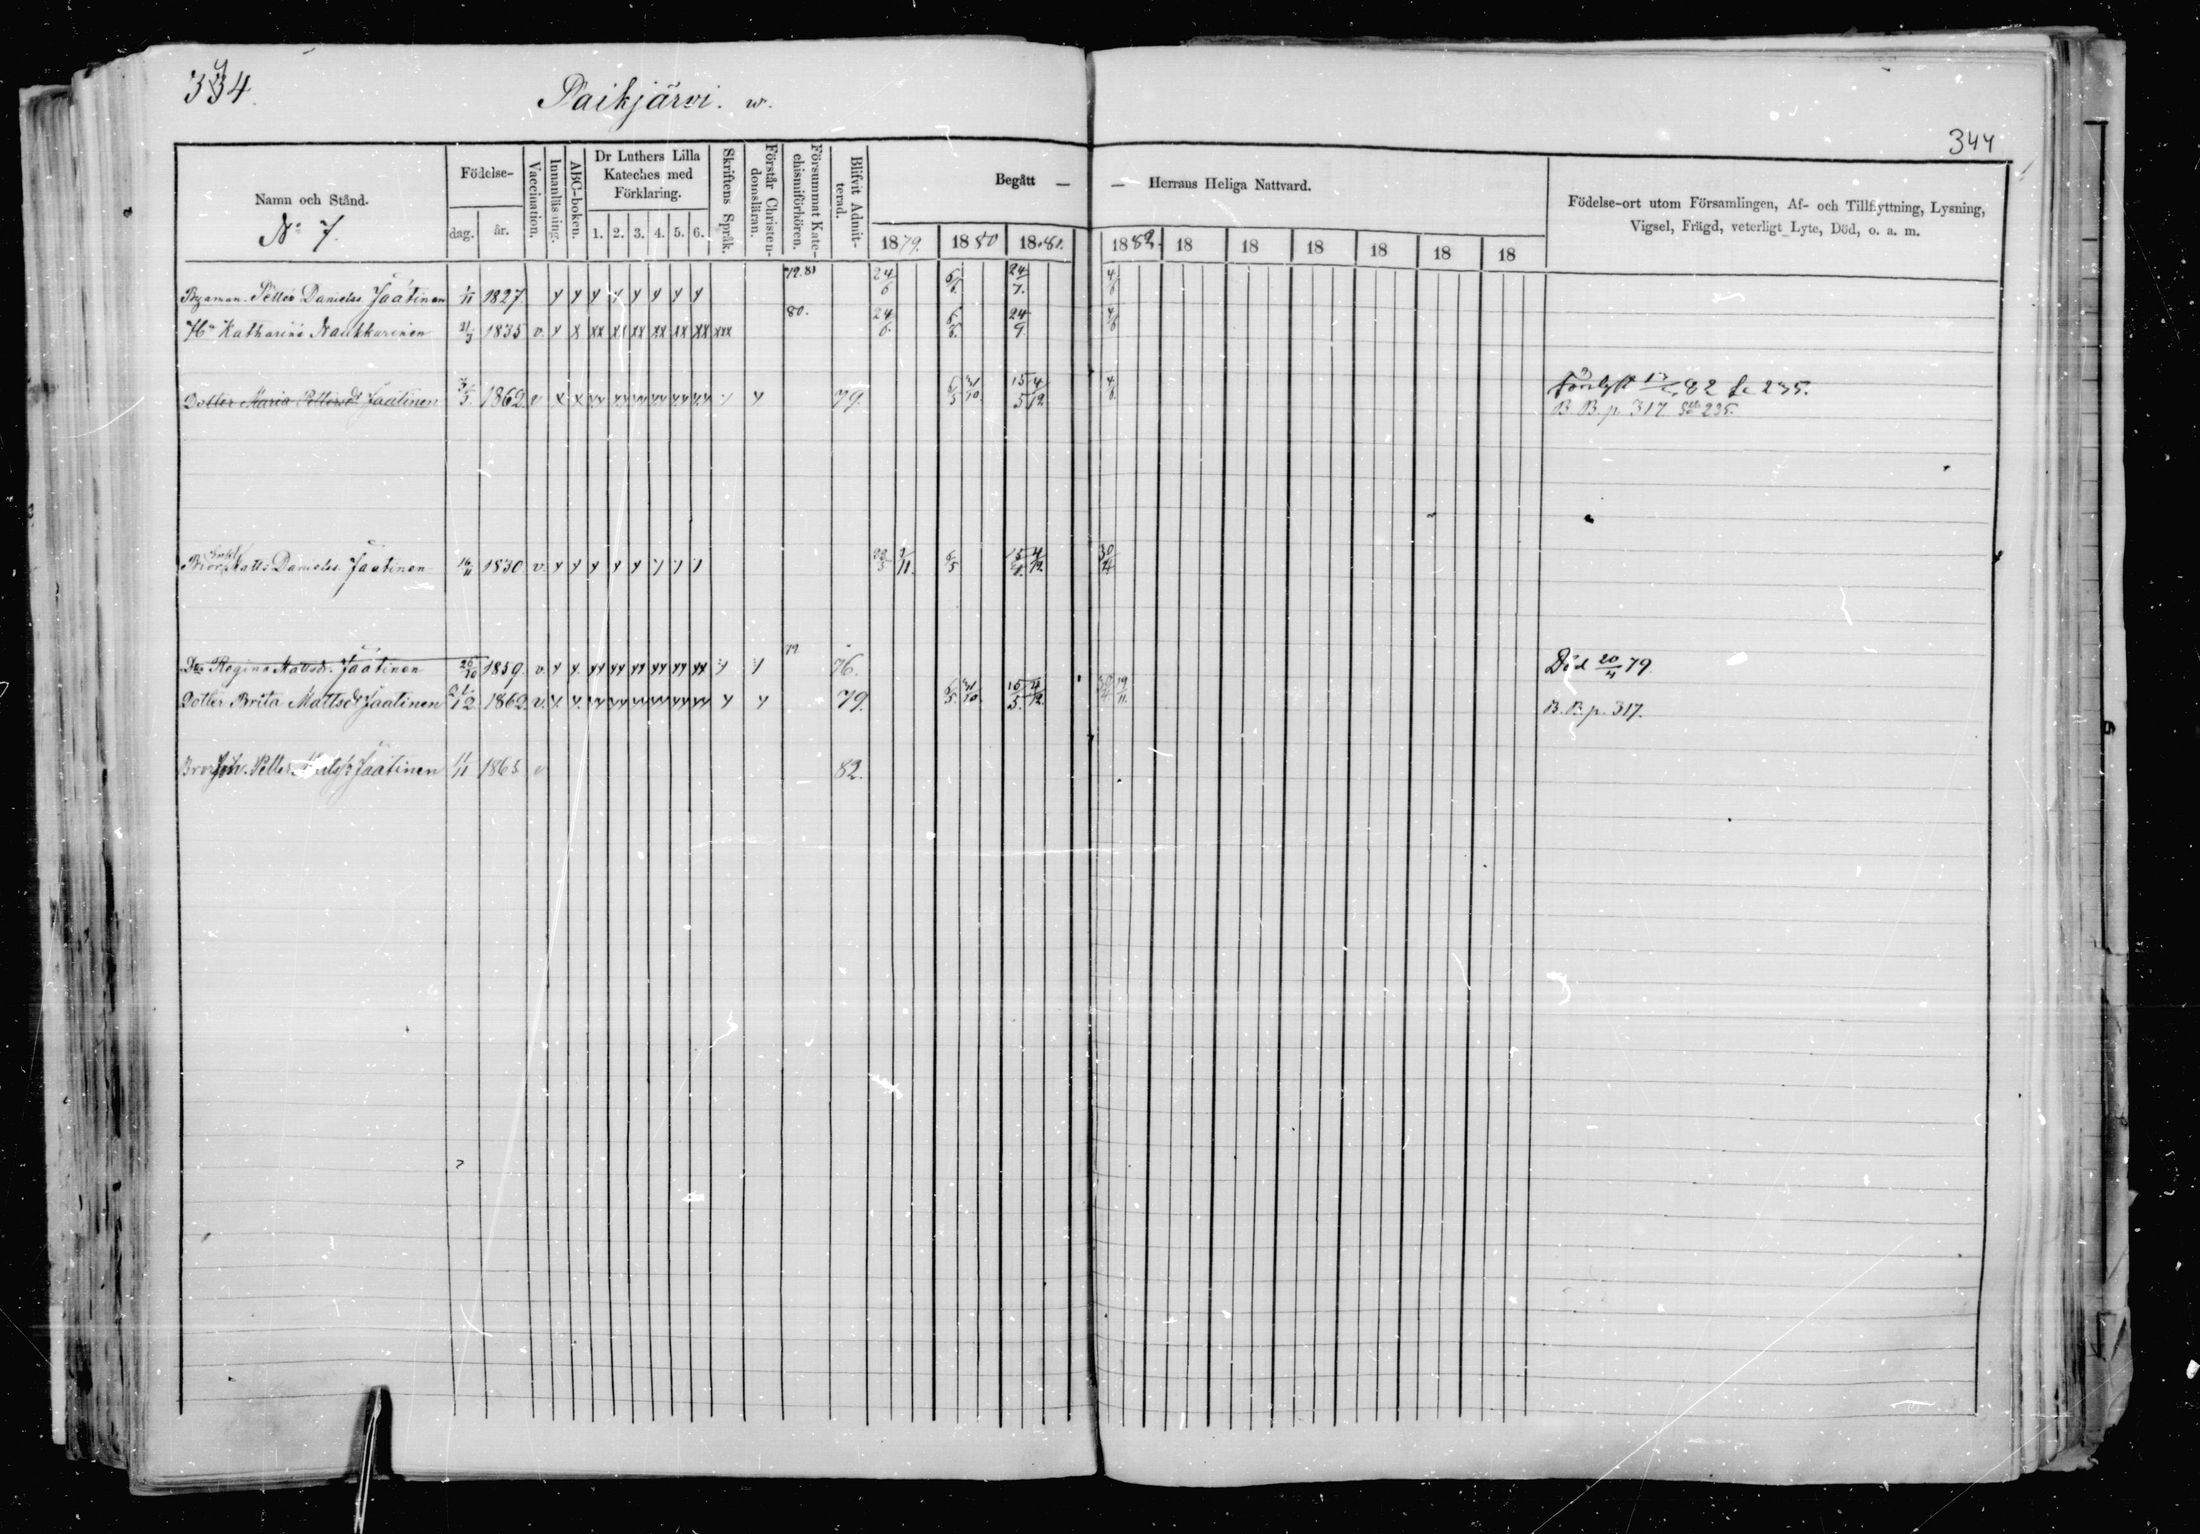 334
Paikjärvi. w.
344
Namn och Stånd.
No 7.
Födelse-
dag. år.
Vaccination.
Innanläsning.
ABC-boken.
Dr Luthers Lilla
Kateches med
Förklaring.
1. 2. 3. 4. 5. 6.
Skriftens Språk.
Förstår Christen-
domsläran.
Försummat Kate-
chismiförhören.
Blifvit Admit-
terad.
Begått — — Herrans Heliga Nattvard.
1879. 1880 1881. 1882. 18 18 18 18 18 18
Födelse-ort utom Församlingen, Af- och Tillflyttning, Lysning,
Vigsel, Frägd, veterligt Lyte, Död, o. a. m.
Byaman. Petter Daniels. Jaatinen 1/11 1827. 79.81 24/6 6/6. 24/7. 4/6
Hu Katharina Naukkarinen 1835 v. x x xx xx xx xx xx xx xxx 80. 24/6. 6/6. 24/9. 4/6
Dotter Maria Pettersdr Jaatinen 3/5. 1862 v 79. 6/5 31/10. 15/5 4/12. 4/6 82 fe 235.
B. B. p. 317. 235.
Enkl.
Bror Matts Daniels. Jaatinen 16/11 1830 v. 2/11. 6/5 15/5 4/12. 30/4
Dr Regina Mattsdr. Jaatinen 26/10 1859. v. 79 76. Död 20/4 79.
Dotter Brita Mattsdr Jaatinen 1862. v. 79. 6/5. 31/10. 15/5. 4/12. 30/4 19/11. B. B. p. 317.
Bror Joh. Petter Jaatinen 1/11 1865 v 82.